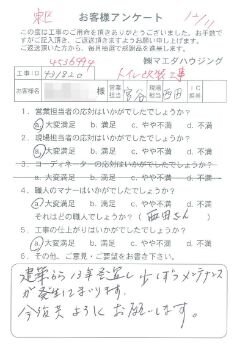 お客様アンケート
この度は工事のご用命を頂きありがとうございました。お手数で
すがご記入頂き、ご返送頂きますようお願い申し上げます。
ご返送頂いた方から、毎月抽選で感謝品を進呈します。
㈱マエダハウジング
工事ID
トイレ改装工事
お客様名
営業担当
宮谷
現場担当
西田
1. 営業担当者の応対はいかがでしたでしょうか?
a.大変満足 b.満足 c.やや不満 d.不満
2. 現場担当者の応対はいかがでしたでしょうか?
a.大変満足 b.満足 c.やや不満 d.不満
3. コーディネーターの応対はいかがでしたでしょうか?
a.大変満足 b.満足 c.やや不満 d.不満
4. 職人のマナーはいかがでしたでしょうか?
a.大変満足 b.満足 c.やや不満 d.不満
それはどの職人でしょうか?(西田さん)
5. 工事の仕上がりはいかがでしたでしょうか?
a.大変満足 b.満足 c.やや不満 d.不満
6. その他、ご意見・ご要望をお書き下さい。
建築から13年経過し少しずつメンテナンス
が発生してまいります。
今後共よろしくお願いします。